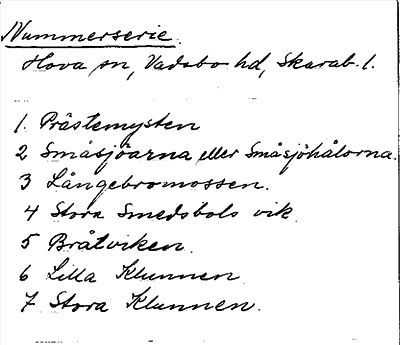 Nummerserie.
Hova sn, Vadsbo hd, Skarab. l.
1. Prästemysten
2 Småsjöarna eller Småsjöhålorna.
3 Långebromossen.
4 Stora Smedsbols vik.
5 Bråtviken.
6 Lilla Klunnen
7 Stora Klunnen.